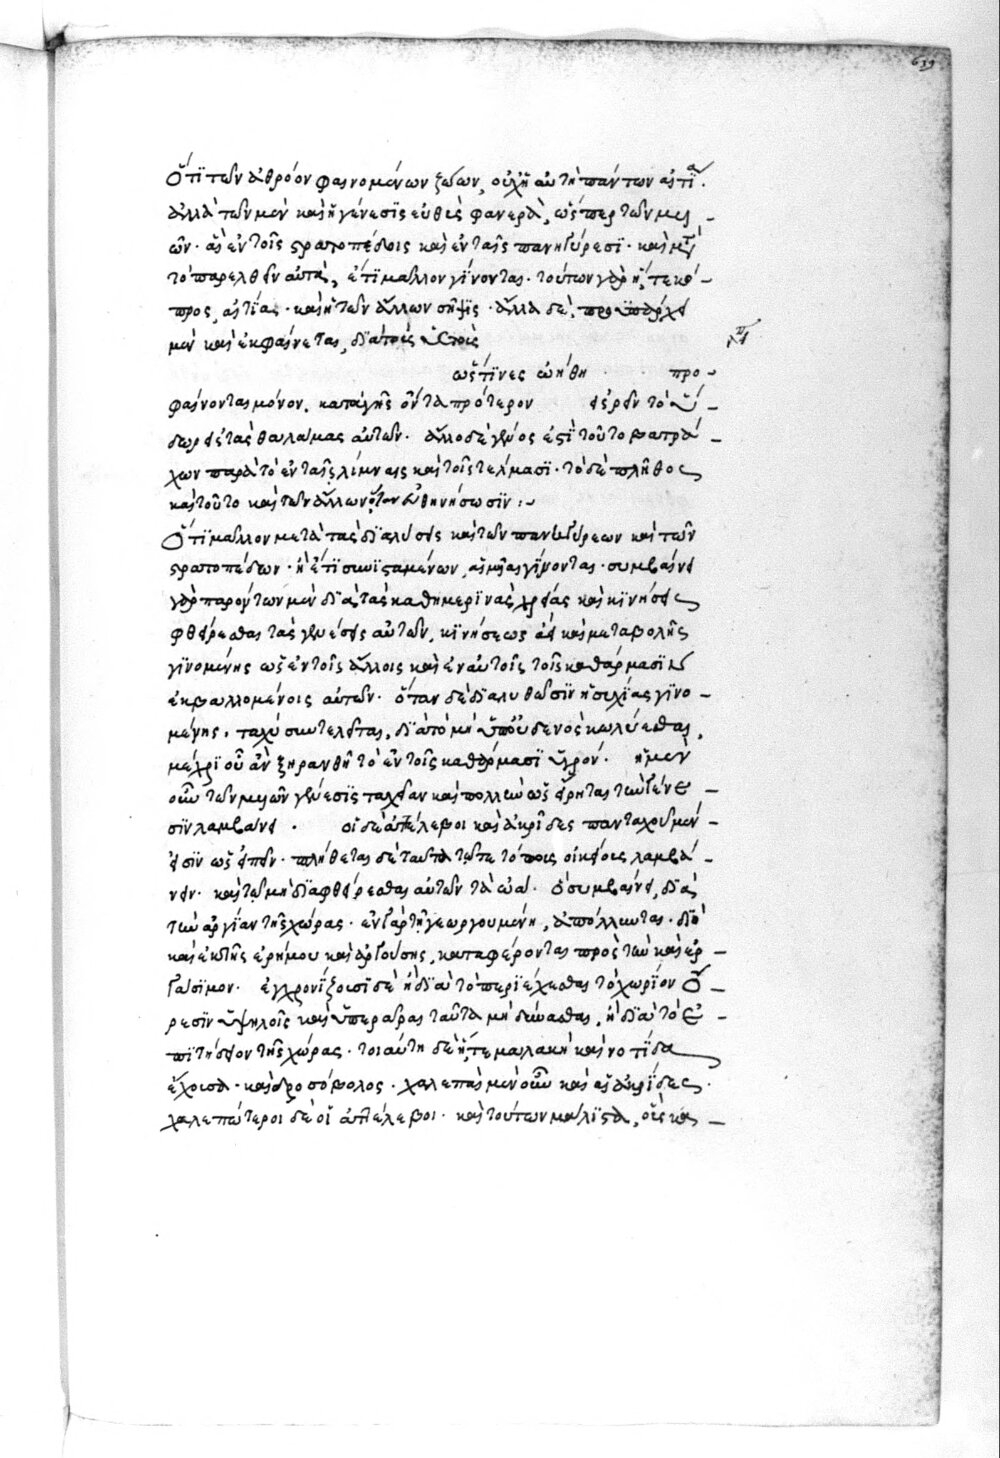 639
Ὅτι τῶν ἀθρόον φαινομένων ζώων, οὐχ ἡ αὐτὴ πάντων αἰτία.
ἀλλὰ τῶν μὲν καὶ ἡ γένεσις εὐθὺς φανερὰ, ὥσπερ τῶν μυι-
ῶν. αἳ ἐν τοῖς στρατοπέδοις καὶ ἐν ταῖς πανηγύρεσι. καὶ μετὰ
τὸ παρελθεῖν αὐτὰ, ἔτι μᾶλλον γίνονται. τούτων γὰρ ἥ τε κό-
προς, αἰτία. καὶ ἡ τῶν ἄλλων σῆψις. ἄλλα δὲ, προϋπάρχει
μὲν καὶ ἐκφαίνεται, διὰ τὰς
ὥς τινες ᾠήθη προ-
φαίνονται μόνον. κατὰ γῆς ὄντα πρότερον εὑρεῖν τὸ ὕ-
δωρ εἰς τὰς θαλάμας αὐτῶν. ἄλλο δὲ γένος ἐστὶ τοῦτο βατρά-
χων παρὰ τὸ ἐν ταῖς λίμναις καὶ τοῖς τέλμασι. τὸ δὲ πλῆθος
καὶ τοῦτο καὶ τῶν ἄλλων ὅταν εὐθηνήσωσιν:~
Ὅτι μᾶλλον μετὰ τὰς διαλύσεις καὶ τῶν πανηγύρεων καὶ τῶν
στρατοπέδων. ἢ ἔτι συνισταμένων, αἱ μυῖαι γίνονται. συμβαίνει
γὰρ παρόντων μὲν διὰ τὰς καθημερινὰς χρείας καὶ κινήσεις
φθείρεσθαι τὰς γενέσεις αὐτῶν, κινήσεως ἀεὶ καὶ μεταβολῆς
γινομένης ὡς ἐν τοῖς ἄλλοις καὶ ἐν αὐτοῖς τοῖς καθάρμασιν
ἐκβαλλομένοις αὐτῶν. ὅταν δὲ διαλυθῶσιν ἡσυχίας γινο-
μένης. ταχὺ συντελεῖται, διὰ τὸ μὴ ὑπ' οὐδενὸς κωλύεσθαι,
μέχρι οὗ ἂν ξηρανθῇ τὸ ἐν τοῖς καθάρμασι ὑγρόν. ἡ μὲν
οὖν τῶν μυιῶν γένεσις ταχεῖαν καὶ πολλὴν ὡς εἴρηται τὴν γένε-
σιν λαμβάνει. οἱ δὲ ἀττέλεβοι καὶ ἀκρίδες πανταχοῦ μέν
εἰσιν ὡς εἰπεῖν. πλήθεται δὲ ταῦτα τῷ τε τόπους οἰκείους λαμβά-
νειν. καὶ τῷ μὴ διαφθείρεσθαι αὐτῶν τὰ ᾠά. ὃ συμβαίνει, διὰ
τὴν ἀργίαν τῆς χώρας. ἐν γὰρ τῇ γεωργουμένῃ, ἀπόλλυται. διὸ
καὶ ἐκ τῆς ἐρήμου καὶ ἀργούσης, καταφέρονται πρὸς τὴν καὶ ἐρ-
γάσιμον. ἐγχρονίζουσι δὲ ἢ διὰ τὸ περιέχεσθαι τὸ χωρίον ὄ-
ρεσιν ὑψηλοῖς καὶ ὑπερᾶραι ταῦτα μὴ δύνασθαι, ἢ διὰ τὸ ἐ-
πιτήδειον τῆς χώρας. τοιαύτη δὲ ἥ τε μαλακὴ καὶ νοτίδα
ἔχουσα. καὶ δροσόβολος. χαλεπαὶ μὲν οὖν καὶ αἱ ἀκρίδες.
χαλεπώτεροι δὲ οἱ ἀττέλεβοι. καὶ τούτων μάλιστα, οἷς κα-